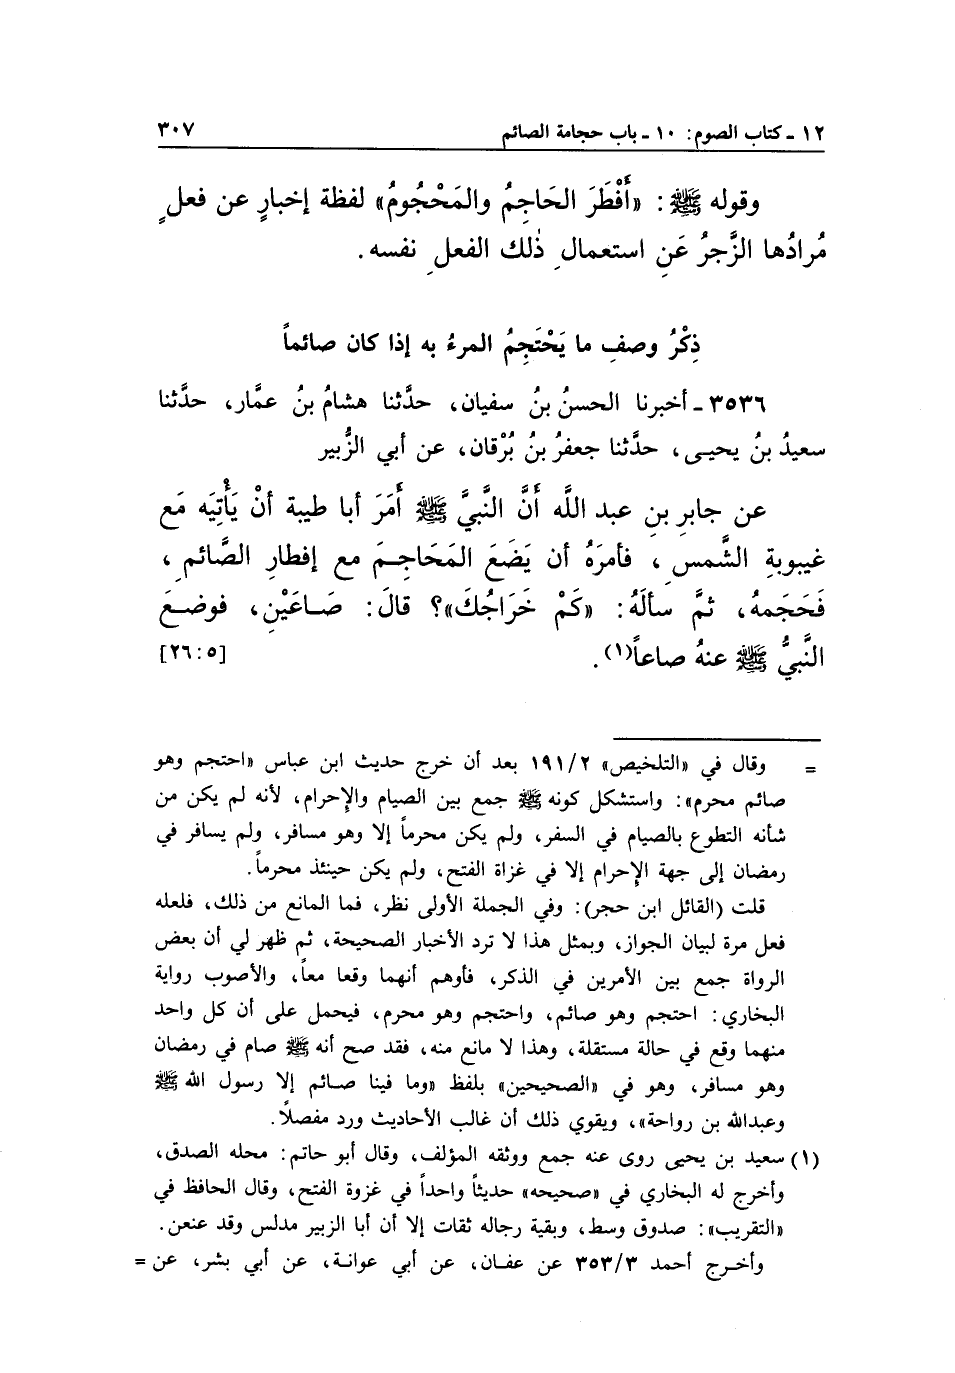 ١٢ ـ كتاب الصوم: ١٠ ـ باب حجامة الصائم ٣٠٧
وقوله ﷺ: «أَفْطَرَ الحَاجِمُ والمَحْجُومُ» لفظة إخبارٍ عن فعلٍ
مُرادُها الزَّجرُ عَنِ استعمالِ ذٰلك الفعلِ نفسه.
ذِكْرُ وصفِ ما يَحْتَجِمُ المرءُ به إذا كان صائماً
٣٥٣٦ ـ أخبرنا الحسنُ بنُ سفيان، حدَّثنا هشامُ بنُ عمَّار، حدَّثنا
سعيدُ بنُ يحيى، حدَّثنا جعفرُ بنُ بُرْقان، عن أبي الزُّبير
عن جابرِ بنِ عبد اللَّه أَنَّ النَّبيَّ ﷺ أَمَرَ أبا طيبة أنْ يَأْتِيَه مَع
غيبوبةِ الشَّمسِ، فأمرَهُ أن يَضَعَ المَحَاجِمَ مع إفطارِ الصَّائمِ،
فَحَجَمهُ، ثمَّ سألَهُ: «كَمْ خَرَاجُكَ»؟ قالَ: صَاعَيْنِ، فوضعَ
النَّبيُّ ﷺ عنهُ صاعاً(١). [٢٦:٥]
= وقال في «التلخيص» ١٩١/٢ بعد أن خرج حديث ابن عباس «احتجم وهو
صائم محرم»: واستشكل كونه ﷺ جمع بين الصيام والإحرام، لأنه لم يكن من
شأنه التطوع بالصيام في السفر، ولم يكن محرماً إلا وهو مسافر، ولم يسافر في
رمضان إلى جهة الإحرام إلا في غزاة الفتح، ولم يكن حينئذ محرماً.
قلت (القائل ابن حجر): وفي الجملة الأولى نظر، فما المانع من ذلك، فلعله
فعل مرة لبيان الجواز، وبمثل هذا لا ترد الأخبار الصحيحة، ثم ظهر لي أن بعض
الرواة جمع بين الأمرين في الذكر، فأوهم أنهما وقعا معاً، والأصوب رواية
البخاري: احتجم وهو صائم، واحتجم وهو محرم، فيحمل على أن كل واحد
منهما وقع في حالة مستقلة، وهذا لا مانع منه، فقد صح أنه ﷺ صام في رمضان
وهو مسافر، وهو في «الصحيحين» بلفظ «وما فينا صائم إلا رسول الله ﷺ
وعبدالله بن رواحة»، ويقوي ذلك أن غالب الأحاديث ورد مفصلاً.
(١) سعيد بن يحيى روى عنه جمع ووثقه المؤلف، وقال أبو حاتم: محله الصدق،
وأخرج له البخاري في «صحيحه» حديثاً واحداً في غزوة الفتح، وقال الحافظ في
«التقريب»: صدوق وسط، وبقية رجاله ثقات إلا أن أبا الزبير مدلس وقد عنعن.
وأخرج أحمد ٣٥٣/٣ عن عفان، عن أبي عوانة، عن أبي بشر، عن =